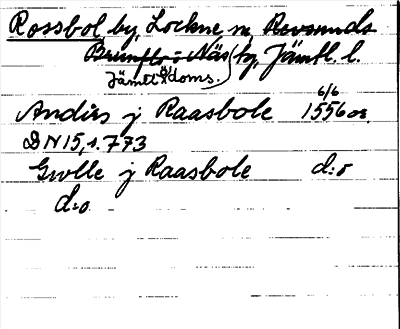 Rossbol by, Lockne sn, Revsunds
Brunflo o Näs tg, Jämtl. l.
Jämtl. ö doms.
6/6
Anders j Raasbole 1556 or.
DN 15, s. 773
Gwlle j Raasbole d:o
d:o